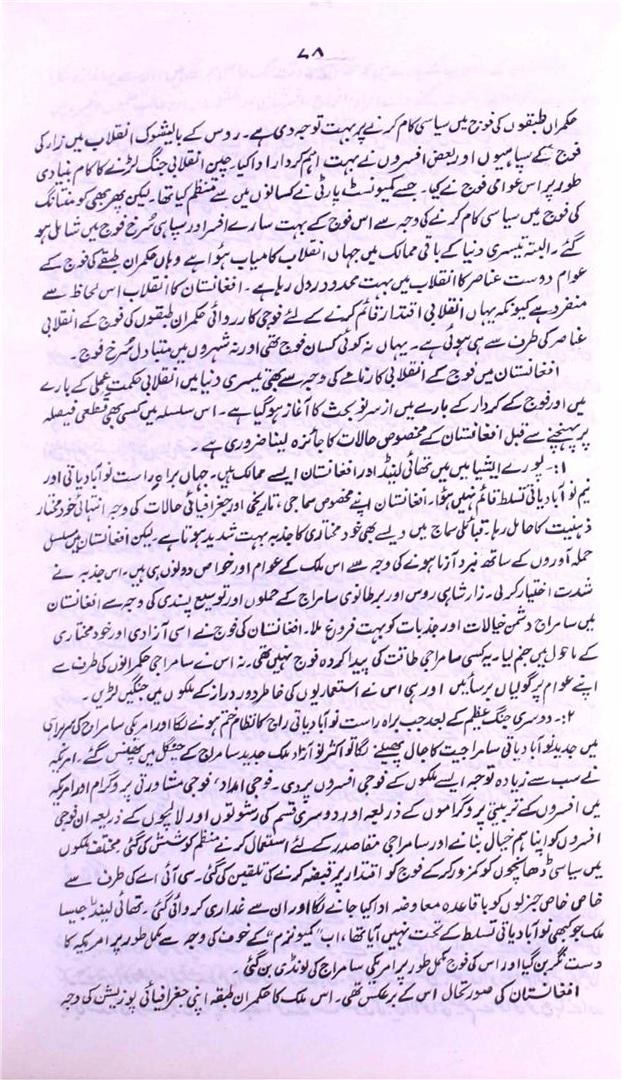 ۷۸
حکمران طبقوں کی فوج میں سیاسی کام کرنے پر بہت توجہ دی ہے۔ روس کے بالشویک انقلاب میں زار کی
فوج کے سپاہیوں اور بعض افسروں نے بہت اہم کردار ادا کیا۔ چین انقلابی جنگ لڑنے کا کام بنیادی
طور پر اس عوامی فوج نے کیا۔ جسے کمیونسٹ پارٹی نے کسانوں میں سے منظم کیا تھا۔ لیکن پھر بھی کومنتانگ
کی فوج میں سیاسی کام کرنے کی وجہ سے اس فوج کے بہت سارے افسر اور سپاہی سُرخ فوج میں شامل ہو
گئے۔ البتہ تیسری دنیا کے باقی ممالک میں جہاں انقلاب کامیاب ہوا ہے وہاں حکمران طبقے کی فوج کے
عوام دوست عناصر کا انقلاب میں بہت محدود رول رہا ہے۔ افغانستان کا انقلاب اس لحاظ سے
منفرد ہے کیونکہ یہاں انقلابی اقتدار قائم کرنے کے لئے فوجی کارروائی حکمران طبقوں کی فوج کے انقلابی
عناصر کی طرف سے ہی ہوئی ہے۔ یہاں نہ کوئی کسان فوج تھی اور نہ شہروں میں متبادل سُرخ فوج۔
افغانستان میں فوج کے انقلابی کارنامے کی وجہ سے بھی تیسری دنیا میں انقلابی حکمت عملی کے بارے
میں اور فوج کے کردار کے بارے میں از سر نو بحث کا آغاز ہو گیا ہے۔ اس سلسلہ میں کسی بھی قطعی فیصلہ
پر پہنچنے سے قبل افغانستان کے مخصوص حالات کا جائزہ لینا ضروری ہے۔
۱:- پورے ایشیا میں میں تھائی لینڈ اور افغانستان ایسے ممالک ہیں۔ جہاں براہ راست نوآبادیاتی اور
نیم نوآبادیاتی تسلط قائم نہیں ہوا۔ افغانستان اپنے مخصوص سماجی، تاریخی اور جغرافیائی حالات کی وجہ انتہائی خود مختار
ذہنیت کا حامل رہا۔ قبائلی سماج میں ویسے بھی خود مختاری کا جذبہ بہت شدید ہوتا ہے۔ لیکن افغانستان میں مسلسل
حملہ آوروں کے ساتھ نبرد آزما ہونے کی وجہ سے اس ملک کے عوام اور خواص دونوں ہی میں۔ اس جذبہ نے
شدت اختیار کر لی۔ زار شاہی روس اور برطانوی سامراج کے حملوں اور توسیع پسندی کی وجہ سے افغانستان
میں سامراج دشمن خیالات اور جذبات کو بہت فروغ ملا۔ افغانستان کی فوج نے اسی آزادی اور خود مختاری
کے ماحول میں جنم لیا۔ یہ کسی سامراجی طاقت کی پیدا کردہ فوج نہیں تھی۔ نہ اس نے سامراجی حکمرانوں کی طرف سے
اپنے عوام پر گولیاں برسائیں اور نہ ہی اس نے استعماریوں کی خاطر دور دراز کے ملکوں میں جنگیں لڑیں۔
۲:- دوسری جنگ عظیم کے بعد جب براہ راست نوآبادیاتی راج کا نظام ختم ہونے لگا اور امریکی سامراج کی سربراہی
میں جدید نوآبادیاتی سامراجیت کا جال پھیلنے لگا تو اکثر نو آزاد ملک جدید سامراج کے چنگل میں پھنس گئے۔ امریکہ
نے سب سے زیادہ توجہ ایسے ملکوں کے فوجی افسروں پر دی۔ فوجی امداد، فوجی مشاورتی پروگرام اور امریکہ
میں افسروں کے تربیتی پروگراموں کے ذریعہ اور دوسری قسم کی رشوتوں اور لالچوں کے ذریعہ ان فوجی
افسروں کو اپنا ہم خیال بنانے اور سامراجی مقاصد کے لئے استعمال کرنے منظم کوشش کی گئی۔ مختلف ملکوں
میں سیاسی ڈھانچوں کو کمزور کر کے فوج کو اقتدار پر قبضہ کرنے کی تلقین کی گئی۔ سی آئی اے کی طرف سے
خاص خاص جنرلوں کو باقاعدہ معاوضہ ادا کیا جانے لگا اور ان سے غداری کروائی گئی۔ تھائی لینڈ جیسا
ملک جو کبھی نوآبادیاتی تسلط کے تحت نہیں آیا تھا، اب "کمیونزم" کے خوف کی وجہ سے مکمل طور پر امریکہ کا
دست نگر بن گیا اور اس کی فوج مکمل طور پر امریکی سامراج کی لونڈی بن گئی۔
افغانستان کی صورتحال اس کے برعکس تھی۔ اس ملک کا حکمران طبقہ اپنی جغرافیائی پوزیشن کی وجہ